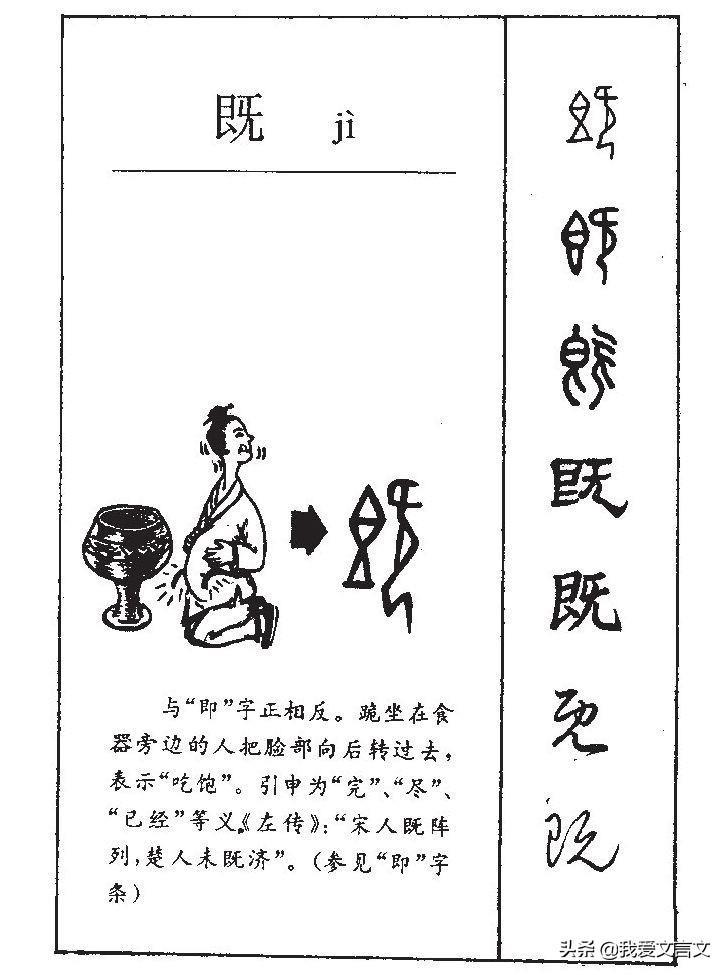 既 jì
与“即”字正相反。跪坐在食
器旁边的人把脸部向后转过去,
表示“吃饱”。引申为“完”、“尽”、
“已经”等义。《左传》:“宋人既阵
列,楚人未既济”。(参见“即”字
条)
既
既
既
既
既
既
既
头条 @我爱文言文